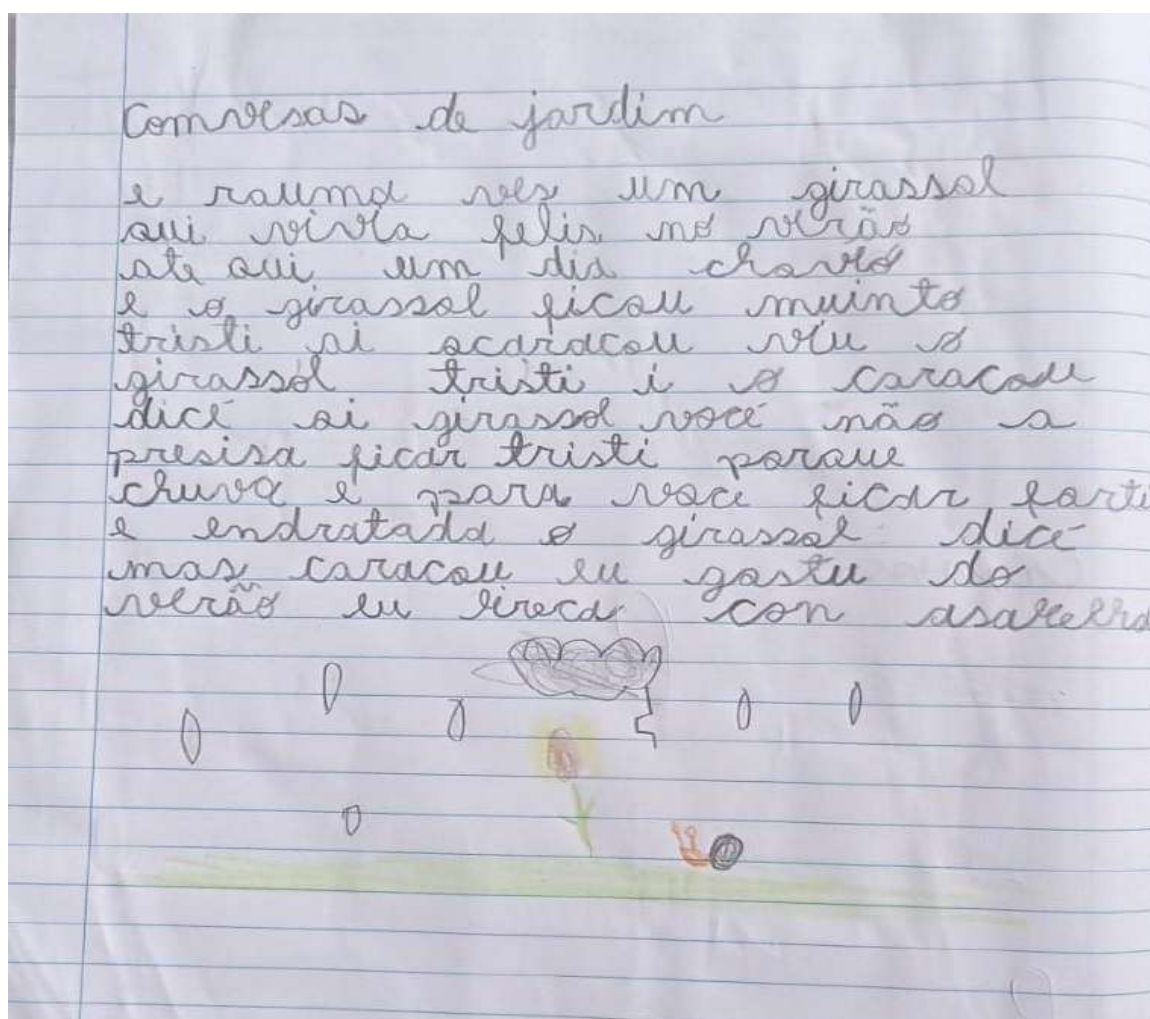 Comversas de jardim
e rauma ves um girassol
qui vivia felis no verão
ate qui um dia choveo
e o girassol ficou muinto
tristi ai ocaracou viu o
girassol tristi i o caracou
dicé ai girassol você não a
presisa ficar tristi porque
chuva e para voce ficar forti
e endratada o girassol dicé
mas caracou eu gostu do
verão eu
con